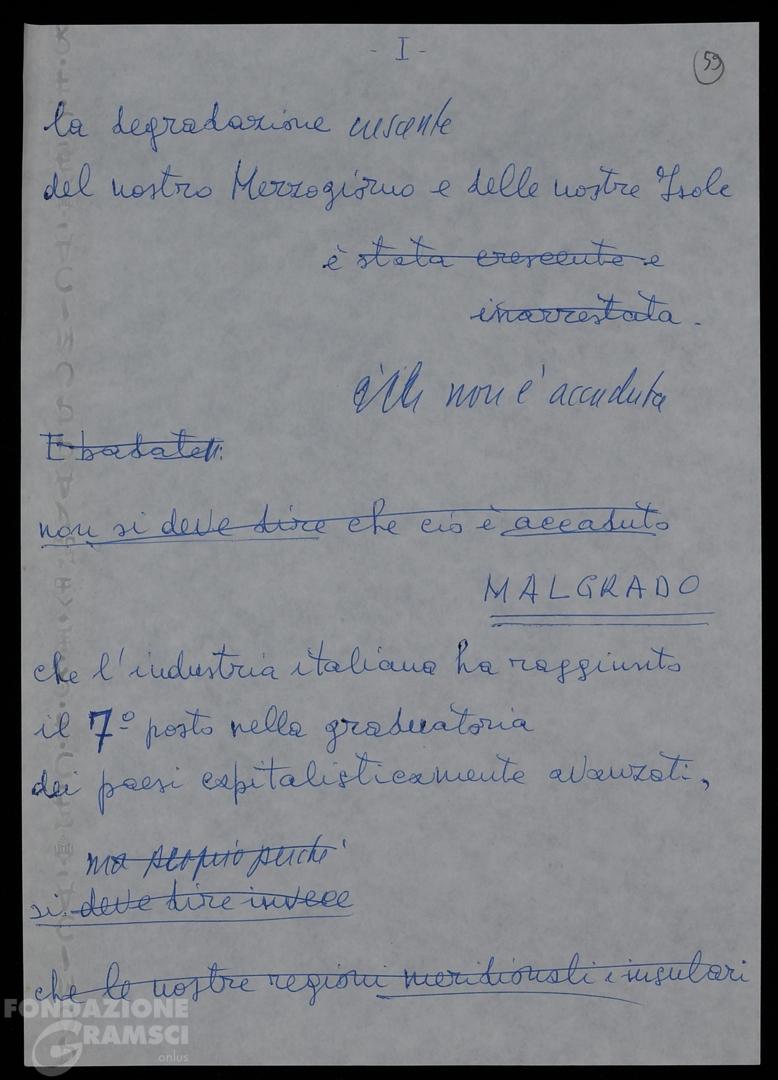 - I -
59
la degradazione crescente
del nostro Mezzogiorno e delle nostre Isole
è stata crescente e
inarrestata.
non è accaduta
E badate:
non si deve dire che ciò è accaduto
MALGRADO
che l'industria italiana ha raggiunto
il 7º posto nella graduatoria
dei paesi capitalisticamente avanzati,
ma proprio perché
si deve dire invece
che le nostre regioni meridionali e insulari
FONDAZIONE
GRAMSCI
onlus